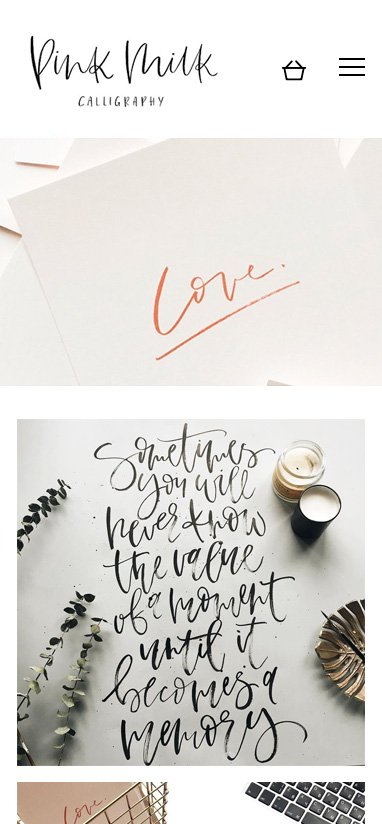 Pink Milk
CALLIGRAPHY
Love.
Sometimes
you will
never know
the value
of a moment
until it
becomes a
memory
Love.